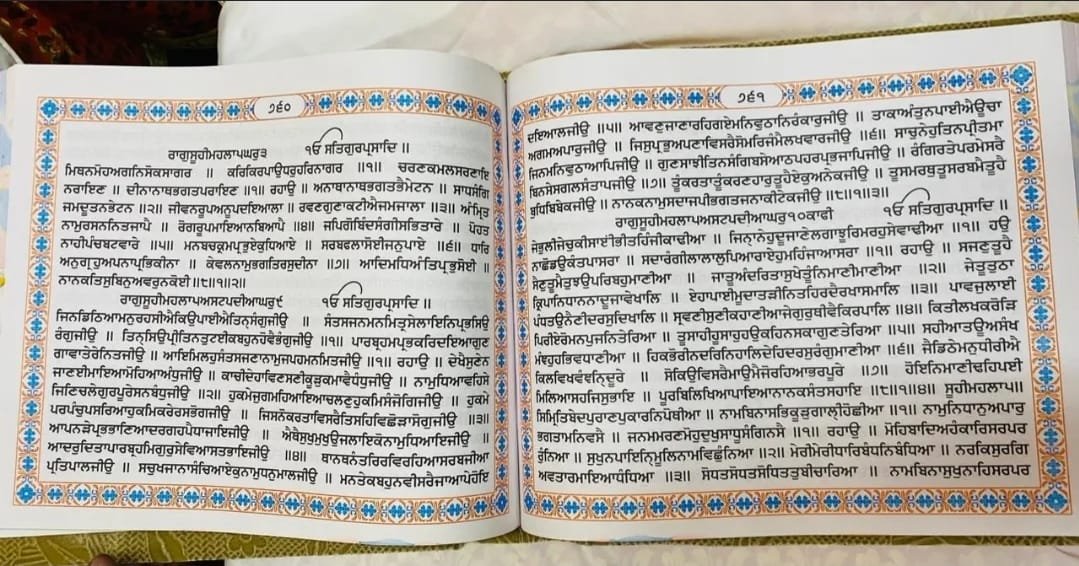 ੭੬੦
ਰਾਗੁਸੂਹੀਮਹਲਾ੫ਘਰੁ੩ ੴ ਸਤਿਗੁਰਪ੍ਰਸਾਦਿ ॥
ਮਿਥਨਮੋਹਅਗਨਿਸੋਕਸਾਗਰ ॥ ਕਰਿਕਿਰਪਾਉਧਰੁਹਰਿਨਾਗਰ ॥੧॥ ਚਰਣਕਮਲਸਰਣਾਇ
ਨਰਾਇਣ ॥ ਦੀਨਾਨਾਥਭਗਤਪਰਾਇਣ ॥੧॥ ਰਹਾਉ ॥ ਅਨਾਥਾਨਾਥਭਗਤਭੈਮੇਟਨ ॥ ਸਾਧਸੰਗਿ
ਜਮਦੂਤਨਭੇਟਨ ॥੨॥ ਜੀਵਨਰੂਪਅਨੂਪਦਇਆਲਾ ॥ ਰਵਣਗੁਣਾਕਟੀਐਜਮਜਾਲਾ ॥੩॥ ਅੰਮ੍ਰਿਤ
ਨਾਮੁਰਸਨਨਿਤਜਾਪੈ ॥ ਰੋਗਰੂਪਮਾਇਆਨਬਿਆਪੈ ॥੪॥ ਜਪਿਗੋਬਿੰਦਸੰਗੀਸਭਿਤਾਰੇ ॥ ਪੋਹਤ
ਨਾਹੀਪੰਚਬਟਵਾਰੇ ॥੫॥ ਮਨਬਚਕ੍ਰਮਪ੍ਰਭੁਏਕੁਧਿਆਏ ॥ ਸਰਬਫਲਾਸੋਈਜਨੁਪਾਏ ॥੬॥ ਧਾਰਿ
ਅਨੁਗ੍ਰਹੁਅਪਨਾਪ੍ਰਭਿਕੀਨਾ ॥ ਕੇਵਲਨਾਮੁਭਗਤਿਰਸੁਦੀਨਾ ॥੭॥ ਆਦਿਮਧਿਅੰਤਿਪ੍ਰਭੁਸੋਈ ॥
ਨਾਨਕਤਿਸੁਬਿਨੁਅਵਰੁਨਕੋਈ॥੮॥੧॥੨॥
ਰਾਗੁਸੂਹੀਮਹਲਾ੫ਅਸਟਪਦੀਆਘਰੁ੯ ੴ ਸਤਿਗੁਰਪ੍ਰਸਾਦਿ ॥
ਜਿਨਡਿਠਿਆਮਨੁਰਹਸੀਐਕਿਉਪਾਈਐਤਿਨ੍ਹਸੰਗੁਜੀਉ ॥ ਸੰਤਸਜਨਮਨਮਿਤ੍ਰਸੇਲਾਇਨਿਪ੍ਰਭਸਿਉ
ਰੰਗੁਜੀਉ ॥ ਤਿਨ੍ਹਸਿਉਪ੍ਰੀਤਿਨਤੁਟਈਕਬਹੁਨਹੋਵੈਭੰਗੁਜੀਉ ॥੧॥ ਪਾਰਬ੍ਰਹਮਪ੍ਰਭਕਰਿਦਇਆਗੁਣ
ਗਾਵਾਤੇਰੇਨਿਤਜੀਉ ॥ ਆਇਮਿਲਹੁਸੰਤਸਜਣਾਨਾਮੁਜਪਹਮਨਮਿਤਜੀਉ ॥੧॥ ਰਹਾਉ ॥ ਦੇਖੈਸੁਣੇਨ
ਜਾਣਈਮਾਇਆਮੋਹਿਆਅੰਧੁਜੀਉ ॥ ਕਾਚੀਦੇਹਾਵਿਣਸਣੀਕੂੜੁਕਮਾਵੈਧੰਧੁਜੀਉ ॥ ਨਾਮੁਧਿਆਵਹਿਸੇ
ਜਿਣਿਚਲੇਗੁਰਪੂਰੇਸਨਬੰਧੁਜੀਉ ॥੨॥ ਹੁਕਮੇਜੁਗਮਹਿਆਇਆਚਲਣੁਹੁਕਮਿਸੰਜੋਗਿਜੀਉ ॥ ਹੁਕਮੇ
ਪਰਪੰਚੁਪਸਰਿਆਹੁਕਮਿਕਰੇਰਸਭੋਗਜੀਉ ॥ ਜਿਸਨੋਕਰਤਾਵਿਸਰੈਤਿਸਹਿਵਿਛੋੜਾਸੋਗੁਜੀਉ ॥੩॥
ਆਪਨੜੇਪ੍ਰਭਭਾਣਿਆਦਰਗਹਪੈਧਾਜਾਇਜੀਉ ॥ ਐਥੈਸੁਖੁਮੁਖੁਉਜਲਾਇਕੋਨਾਮੁਧਿਆਇਜੀਉ ॥
ਆਦਰੁਦਿਤਾਪਾਰਬ੍ਰਹਮਿਗੁਰੁਸੇਵਿਆਸਤਭਾਇਜੀਉ ॥੪॥ ਥਾਨਥਨੰਤਰਿਰਵਿਰਹਿਆਸਰਬਜੀਆ
ਪ੍ਰਤਿਪਾਲਜੀਉ ॥ ਸਚੁਖਜਾਨਾਸੰਚਿਆਏਕੁਨਾਮੁਧਨੁਮਾਲਜੀਉ ॥ ਮਨਤੇਕਬਹੁਨਵੀਸਰੈਜਾਆਪੇਹੋਇ
੭੬੧
ਦਇਆਲਜੀਉ ॥੫॥ ਆਵਣੁਜਾਣਾਰਹਿਗਏਮਨਿਵੁਠਾਨਿਰੰਕਾਰੁਜੀਉ ॥ ਤਾਕਾਅੰਤੁਨਪਾਈਐਊਚਾ
ਅਗਮਅਪਾਰੁਜੀਉ ॥ ਜਿਸੁਪ੍ਰਭੁਅਪਣਾਵਿਸਰੈਸੋਮਰਿਜੰਮੈਲਖਵਾਰਜੀਉ ॥੬॥ ਸਾਚੁਨੇਹੁਤਿਨਪ੍ਰੀਤਮਾ
ਜਿਨਮਨਿਵੁਠਾਆਪਿਜੀਉ ॥ ਗੁਣਸਾਝੀਤਿਨਸੰਗਿਬਸੇਆਠਪਹਰਪ੍ਰਭਜਾਪਿਜੀਉ ॥ ਰੰਗਿਰਤੇਪਰਮੇਸਰੈ
ਬਿਨਸੇਸਗਲਸੰਤਾਪਜੀਉ ॥੭॥ ਤੂੰਕਰਤਾਤੂੰਕਰਣਹਾਰੁਤੂਹੈਏਕੁਅਨੇਕਜੀਉ ॥ ਤੂਸਮਰਥੁਤੂਸਰਬਮੈਤੂਹੈ
ਬੁਧਿਬਿਬੇਕਜੀਉ ॥ ਨਾਨਕਨਾਮੁਸਦਾਜਪੀਭਗਤਜਨਾਕੀਟੇਕਜੀਉ ॥੮॥੧॥੩॥
ਰਾਗੁਸੂਹੀਮਹਲਾ੫ਅਸਟਪਦੀਆਘਰੁ੧੦ਕਾਫੀ ੴ ਸਤਿਗੁਰਪ੍ਰਸਾਦਿ ॥
ਜੇਭੁਲੀਜੇਚੁਕੀਸਾਈਭੀਤਹਿੰਜੀਕਾਢੀਆ ॥ ਜਿਨ੍ਹਾਨੇਹੁਦੂਜਾਣੇਲਗਾਝੂਰਿਮਰਹੁਸੇਵਾਢੀਆ ॥੧॥ ਹਉ
ਨਾਛੋਡਉਕੰਤਪਾਸਰਾ ॥ ਸਦਾਰੰਗੀਲਾਲਾਲੁਪਿਆਰਾਏਹੁਮਹਿੰਜਾਆਸਰਾ ॥੧॥ ਰਹਾਉ ॥ ਸਜਣੁਤੂਹੈ
ਸੈਣੁਤੂਮੈਤੁਝਉਪਰਿਬਹੁਮਾਣੀਆ ॥ ਜਾਤੂਅੰਦਰਿਤਾਸੁਖੇਤੂੰਨਿਮਾਣੀਮਾਣੀਆ ॥੨॥ ਜੇਤੂਤੁਠਾ
ਕ੍ਰਿਪਾਨਿਧਾਨਨਾਦੂਜਾਵੇਖਾਲਿ ॥ ਏਹਾਪਾਈਮੂਦਾਤੜੀਨਿਤਹਿਰਦੈਰਖਾਸਮਾਲਿ ॥੩॥ ਪਾਵਜੁਲਾਈ
ਪੰਧਤਉਨੈਣੀਦਰਸੁਦਿਖਾਲਿ ॥ ਸ੍ਰਵਣੀਸੁਣੀਕਹਾਣੀਆਜੇਗੁਰੁਥੀਵੈਕਿਰਪਾਲਿ ॥੪॥ ਕਿਤੀਲਖਕਰੋੜਿ
ਪਿਰੀਏਰੋਮਨਪੁਜਨਿਤੇਰਿਆ ॥ ਤੂਸਾਹੀਹੂਸਾਹੁਹਉਕਹਿਨਸਕਾਗੁਣਤੇਰਿਆ ॥੫॥ ਸਹੀਆਤਊਅਸੰਖ
ਮੰਞਹੁਹਭਿਵਧਾਣੀਆ ॥ ਹਿਕਭੋਰੀਨਦਰਿਨਿਹਾਲਿਦੇਹਿਦਰਸੁਰੰਗੁਮਾਣੀਆ ॥੬॥ ਜੈਡਿਠੇਮਨੁਧੀਰੀਐ
ਕਿਲਵਿਖਵੰਞਨ੍ਹਿਦੂਰੇ ॥ ਸੋਕਿਉਵਿਸਰੈਮਾਉਮੈਜੋਰਹਿਆਭਰਪੂਰੇ ॥੭॥ ਹੋਇਨਿਮਾਣੀਢਹਿਪਈ
ਮਿਲਿਆਸਹਜਿਸੁਭਾਇ ॥ ਪੂਰਬਿਲਿਖਿਆਪਾਇਆਨਾਨਕਸੰਤਸਹਾਇ ॥੮॥੧॥੪॥ ਸੂਹੀਮਹਲਾ੫॥
ਸਿਮ੍ਰਿਤਿਬੇਦਪੁਰਾਣਪੁਕਾਰਨਿਪੋਥੀਆ ॥ ਨਾਮਬਿਨਾਸਭਿਕੂੜੁਗਾਲ੍ਹੀਹੋਛੀਆ ॥੧॥ ਨਾਮੁਨਿਧਾਨੁਅਪਾਰੁ
ਭਗਤਾਮਨਿਵਸੈ ॥ ਜਨਮਮਰਣਮੋਹੁਦੁਖੁਸਾਧੂਸੰਗਿਨਸੈ ॥੧॥ ਰਹਾਉ ॥ ਮੋਹਿਬਾਦਿਅਹੰਕਾਰਿਸਰਪਰ
ਰੁੰਨਿਆ ॥ ਸੁਖੁਨਪਾਇਨ੍ਹਿਮੂਲਿਨਾਮਵਿਛੁੰਨਿਆ ॥੨॥ ਮੇਰੀਮੇਰੀਧਾਰਿਬੰਧਨਿਬੰਧਿਆ ॥ ਨਰਕਿਸੁਰਗਿ
ਅਵਤਾਰਮਾਇਆਧੰਧਿਆ ॥੩॥ ਸੋਧਤਸੋਧਤਸੋਧਿਤਤੁਬੀਚਾਰਿਆ ॥ ਨਾਮਬਿਨਾਸੁਖੁਨਾਹਿਸਰਪਰ